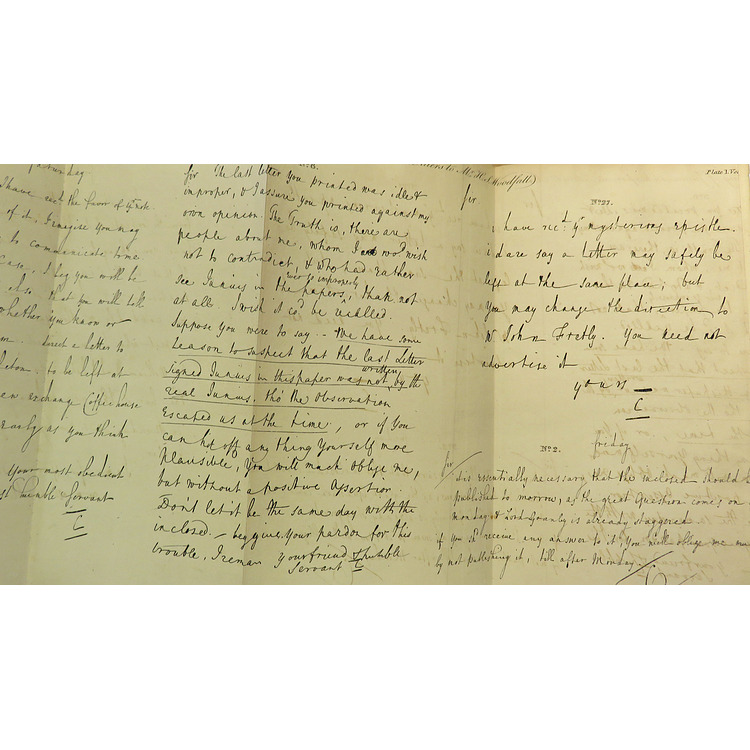 Saturday
have recd the favor of yr note
of it, I imagine you may
to communicate to me.
case, I beg you will be
that you will tell
whether you know or
Direct a letter to
to be left at
exchange Coffee house
as you think
your most obedient
humble Servant
C
Sir The last letter you printed was idle &
improper, & I assure you printed against my
own opinion. The Truth is, there are
people about me, whom I wod wish
not to contradict, & who had rather
see Junius in the papers ever so improperly, than not
at all. I wish it cod be recalled.
Suppose you were to say - We have some
reason to suspect that the last Letter
signed Junius in this paper was not written by the
real Junius, tho' the Observation
Escaped us at the time, or if You
can hit off any thing Yourself more
plausible, you will much oblige me,
but without a positive Assertion
Don't let it be the same day with the
inclosed. - beg giving your pardon for this
trouble, I remain your friend & humble
Servant C
to Mr. H. S. Woodfall)
Plate I. Vol.
No. 27.
Sir.
I have recd yr mysterious epistle.
I dare say a letter may safely be
left at the same place; but
you may change the direction to
Mr John Fretly. You need not
advertise it
yours
C
No. 2.
friday
Sir
Tis essentially necessary that the inclosed should be
published to morrow, as the great Question comes on
monday & Lord Granby is already staggered
if you shd receive any answer to it, You will oblige me
by not publishing it, till after Monday.
C